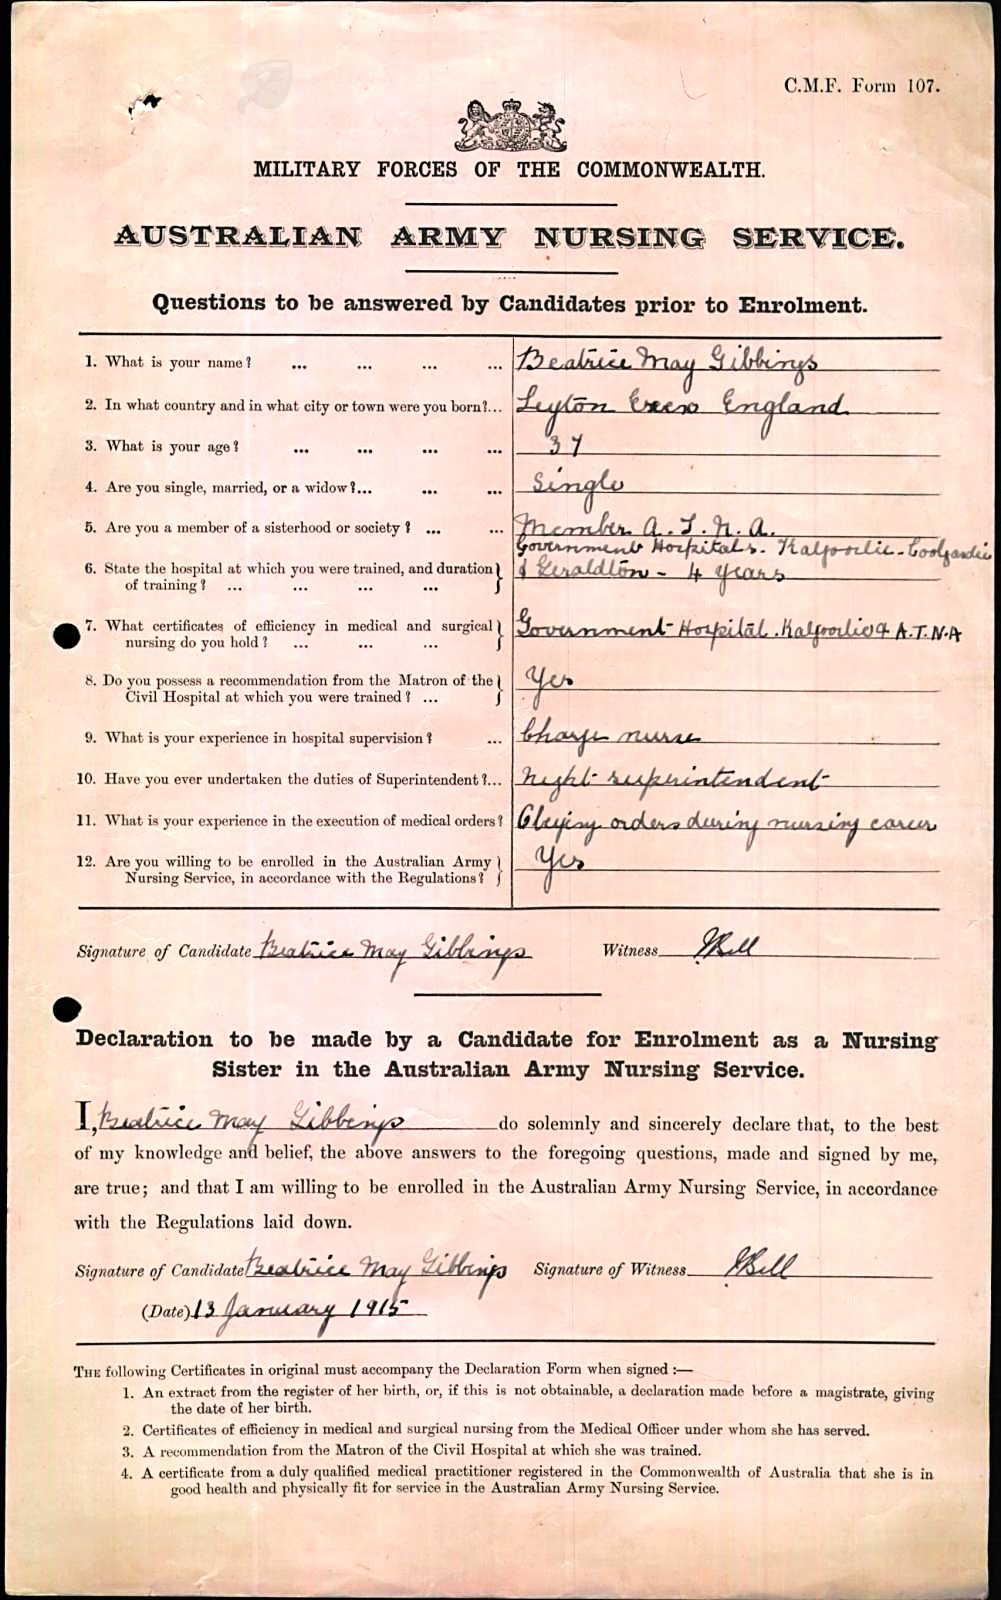 C.M.F. Form 107.
MILITARY FORCES OF THE COMMONWEALTH.
AUSTRALIAN ARMY NURSING SERVICE.
Questions to be answered by Candidates prior to Enrolment.
1. What is your name? ... ... ... ... Beatrice May Gibbings
2. In what country and in what city or town were you born?... Leyton Essex England
3. What is your age? ... ... ... ... 37
4. Are you single, married, or a widow?... ... ... Single
5. Are you a member of a sisterhood or society? ... ... Member A. T. N. A.
Government Hospitals. Kalgoorlie - Coolgardie
6. State the hospital at which you were trained, and duration & Geraldton - 4 years
of training? ... ... ... ...
7. What certificates of efficiency in medical and surgical Government Hospital. Kalgoorlie & A.T.N.A
nursing do you hold? ... ... ...
8. Do you possess a recommendation from the Matron of the Yes
Civil Hospital at which you were trained? ...
9. What is your experience in hospital supervision? ... Charge nurse
10. Have you ever undertaken the duties of Superintendent?... Night superintendent
11. What is your experience in the execution of medical orders? Obeying orders during nursing career
12. Are you willing to be enrolled in the Australian Army Yes
Nursing Service, in accordance with the Regulations?
Signature of Candidate Beatrice May Gibbings Witness Bell
Declaration to be made by a Candidate for Enrolment as a Nursing
Sister in the Australian Army Nursing Service.
I, Beatrice May Gibbings do solemnly and sincerely declare that, to the best
of my knowledge and belief, the above answers to the foregoing questions, made and signed by me,
are true; and that I am willing to be enrolled in the Australian Army Nursing Service, in accordance
with the Regulations laid down.
Signature of Candidate Beatrice May Gibbings Signature of Witness Bell
(Date) 13 January 1915
THE following Certificates in original must accompany the Declaration Form when signed :—
1. An extract from the register of her birth, or, if this is not obtainable, a declaration made before a magistrate, giving
the date of her birth.
2. Certificates of efficiency in medical and surgical nursing from the Medical Officer under whom she has served.
3. A recommendation from the Matron of the Civil Hospital at which she was trained.
4. A certificate from a duly qualified medical practitioner registered in the Commonwealth of Australia that she is in
good health and physically fit for service in the Australian Army Nursing Service.